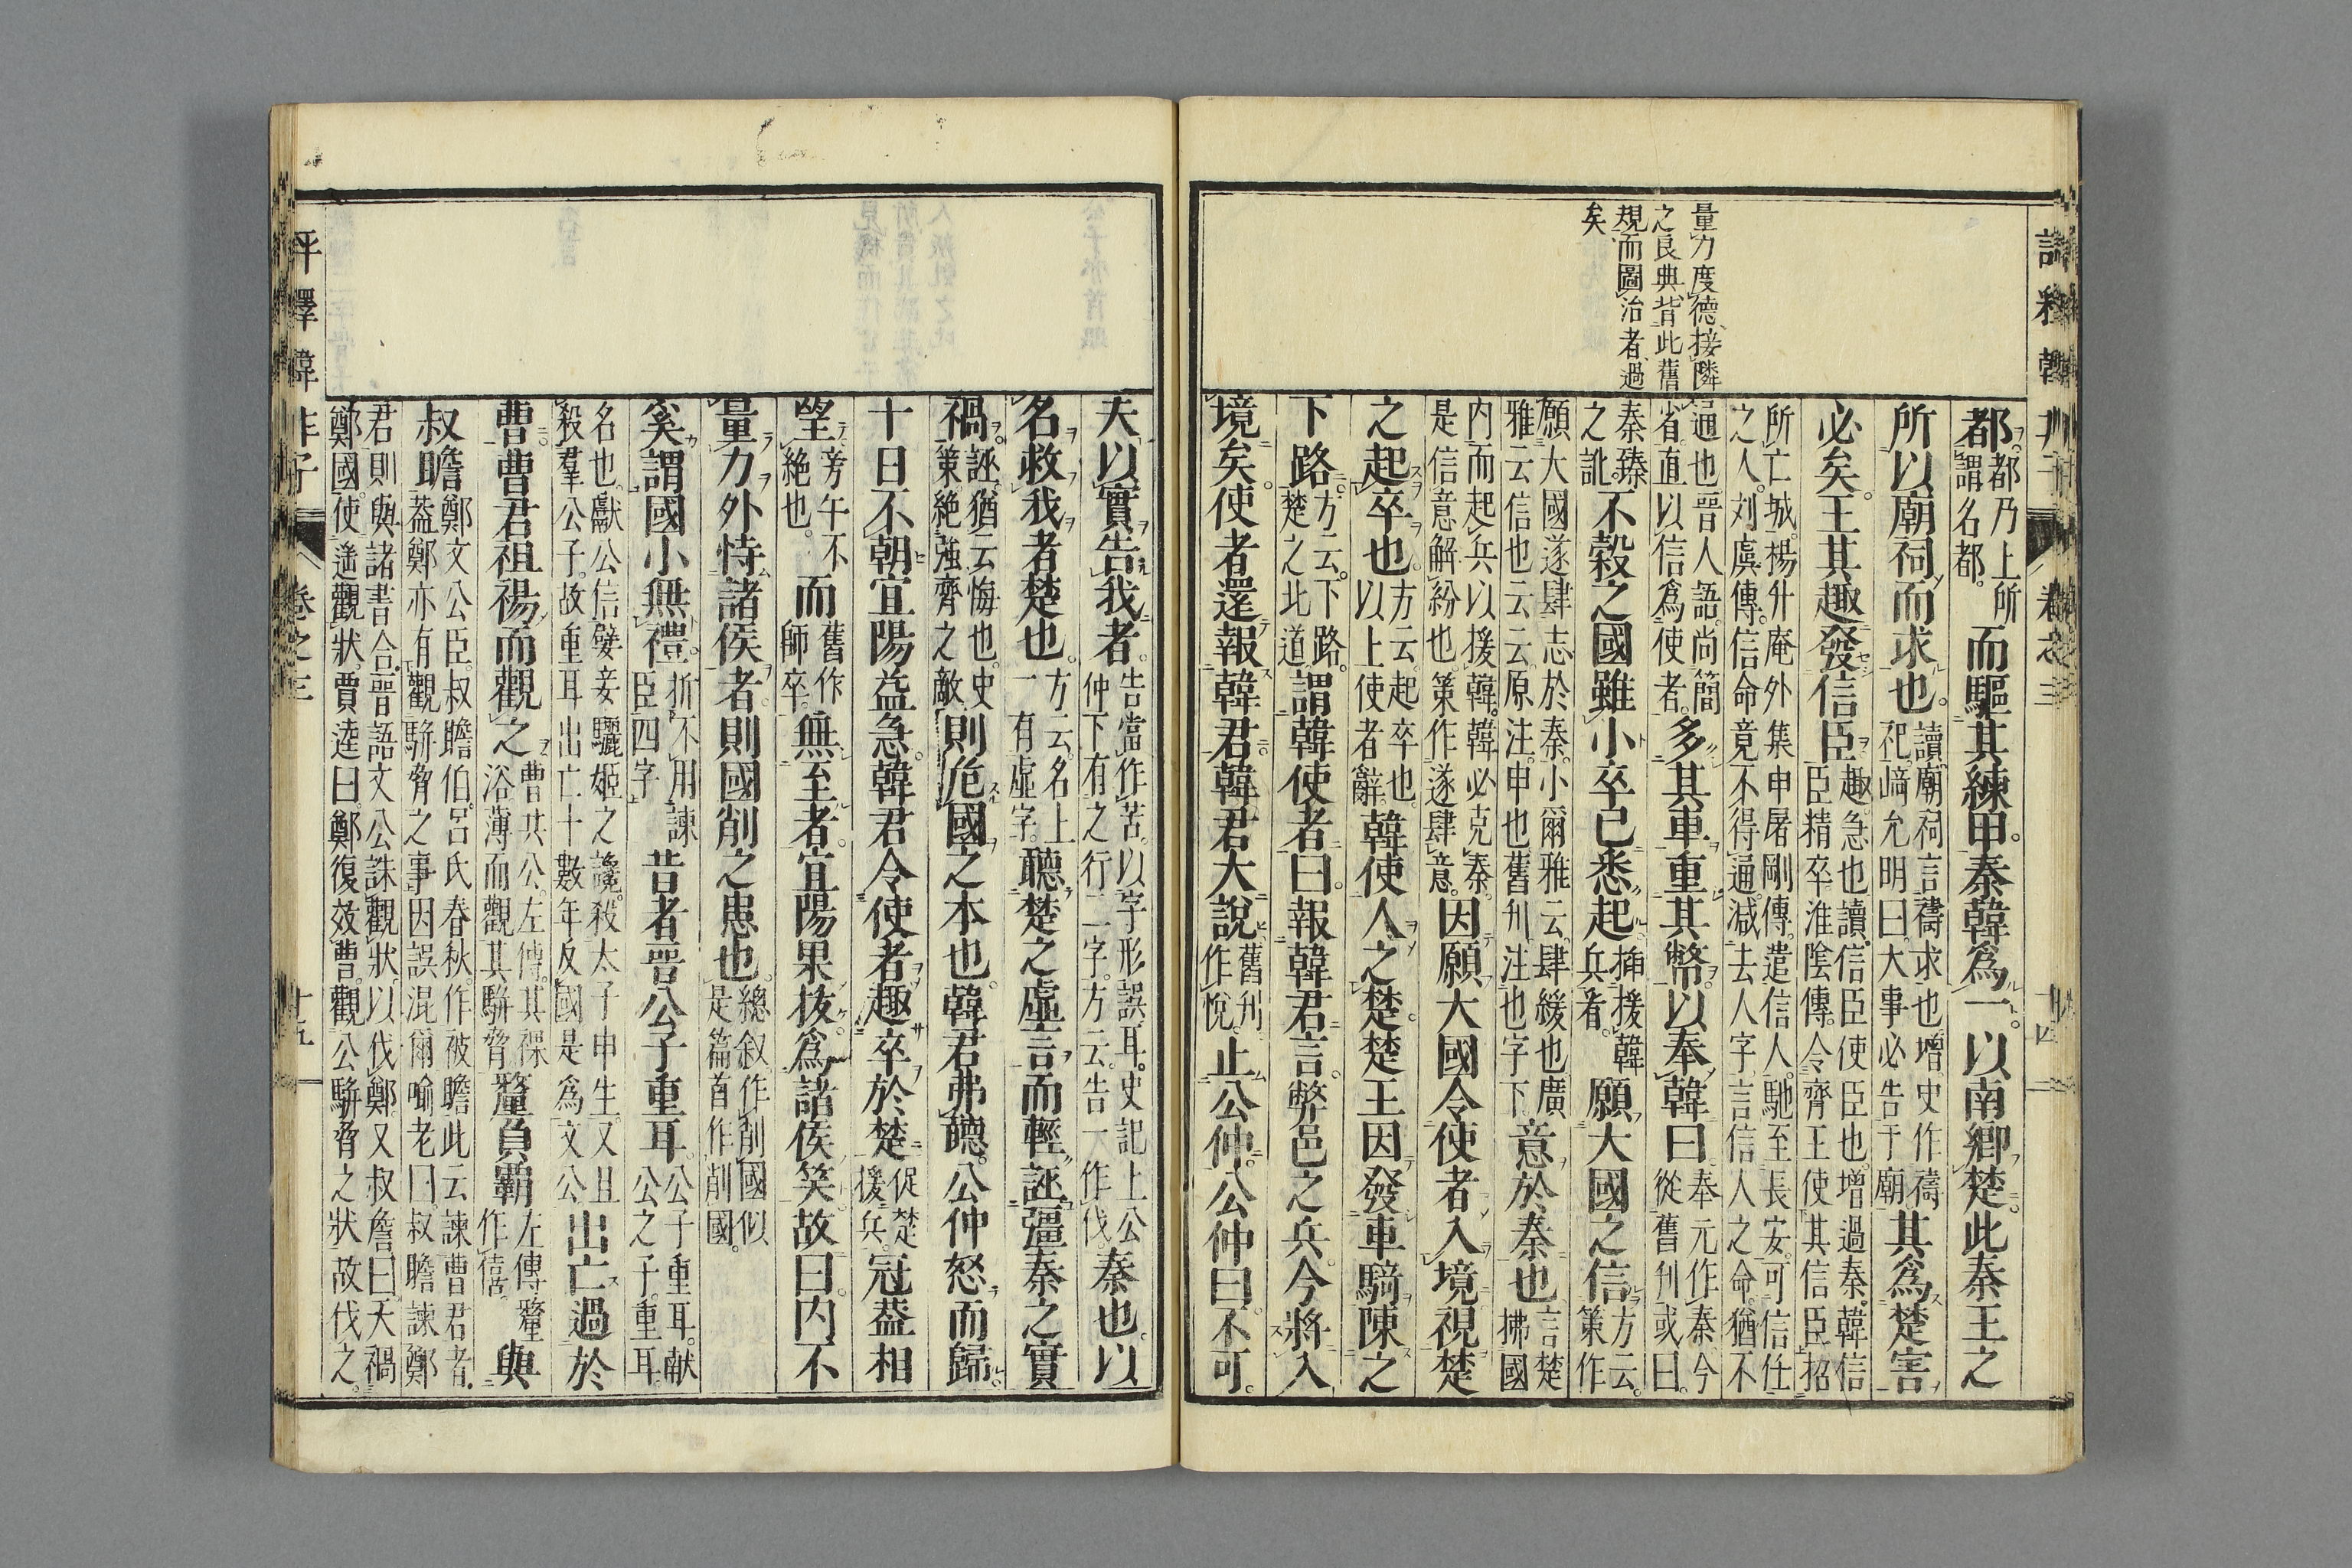 量力度德、接隣
之良典、背此舊
規而圖治者、過
矣、
都。都乃上所謂名都。而驅其練甲。秦韓爲一。以南鄉楚。此秦王之
所以廟祠而求也。讀廟祠言禱求也增史作禱祀﨑允明曰大事必告于廟其爲楚害
必矣。王其趣發信臣趣急也讀信臣使臣也增過秦韓信臣精卒淮陰傳令齊王使其信臣招
所亡城楊升庵外集申屠剛傳遣信人馳至長安可信任之人。刘虞傳信命竟不得通減去人字言信人之命猶不
通也晉人語尚簡省直以信爲使者。多其車重其幣以奉韓曰。奉元作秦今從舊刋或曰
秦臻之訛。不穀之國雖小卒已悉起。揷援韓兵者。願大國之信方云。策作
願大國遂肆志於秦。小爾雅云肆緩也廣雅云信也云云原注。申也舊刋注也字下意於秦也言楚拂國
内而起兵以援韓。韓必克秦。是信意解紛也策作遂肆意。因願大國令使者入境視楚
之起卒也。方云起卒也以上使者辭。韓使人之楚。楚王因發車騎陳之
下路。方云。下路。楚之北道謂韓使者曰。報韓君言。弊邑之兵。今將入
境矣。使者還報韓君。韓君大說舊刋作悅。止公仲。公仲曰。不可。
評釋韓非子
卷之三
十五
夫以實告我者。告當作苦。以字形誤耳。史記上公仲下有之行二字。方云。告一作伐。秦也。以
名救我者楚也。方云。名上一有虛字。聽楚之虛言而輕誣彊秦之實
禍。誣。猶云悔也。史策絶強齊之敵則危國之本也。韓君弗聽。公仲怒而歸。
十日不朝。宜陽益急。韓君令使者趣卒於楚促楚援兵。冠蓋相
望旁午不絶也。而舊作師卒。無至者。宜陽果拔。爲諸侯笑。故曰。内不
量力外恃諸侯者。則國削之患也。總叙作削國似是篇首作削國。
奚謂國小無禮。折不用諫臣四字昔者晉公子重耳。公子重耳。献公之子。重耳。
名也。獻公信嬖妾驪姫之讒。殺太子申生。又且殺羣公子。故重耳出亡十數年反國是爲文公出亡過於
曹。曹君袒裼而觀之曹共公。左傳。其裸浴薄而觀其駢脅釐負覇左傳釐作僖。與
叔瞻鄭文公臣。叔瞻伯。呂氏春秋。作被瞻此云諫曹君者。蓋鄭亦有觀駢脅之事因誤混爾喻老曰叔瞻諫鄭
君則與諸書合。晉語文公誅觀狀。以伐鄭。又叔詹曰天禍鄭國。使遙觀狀。賈逵曰。鄭復效曹。觀公駢脅之狀故伐之。